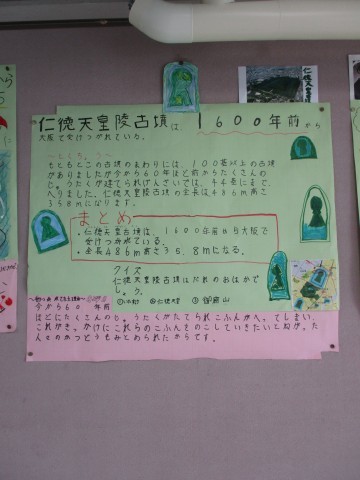 仁徳天皇陵古墳は 1600年前から
大阪で受けつがれている。
もともとこの古墳のまわりには、100基以上の古墳
がありましたが今から60年ほど前からたくさんの
じゅうたくが建てられげんざいでは、44基にまで、
へりました。仁徳天皇陵古墳の全長は486m高さ
35.8mになります。
まとめ
・仁徳天皇古墳は、1600年前から大阪で
受けつがれている。
・全長486m高さ35.8mになる。
クイズ
仁徳天皇陵古墳はだれのおはかで
しょう。
②仁徳天皇 ③御廟山
今から60年前
ほどにたくさんのじゅうたくがたてられこふんがへってしまい、
これがきっかけにこれらのこふんをのこしていきたいと
人々のかつどうもみとめられたからです。